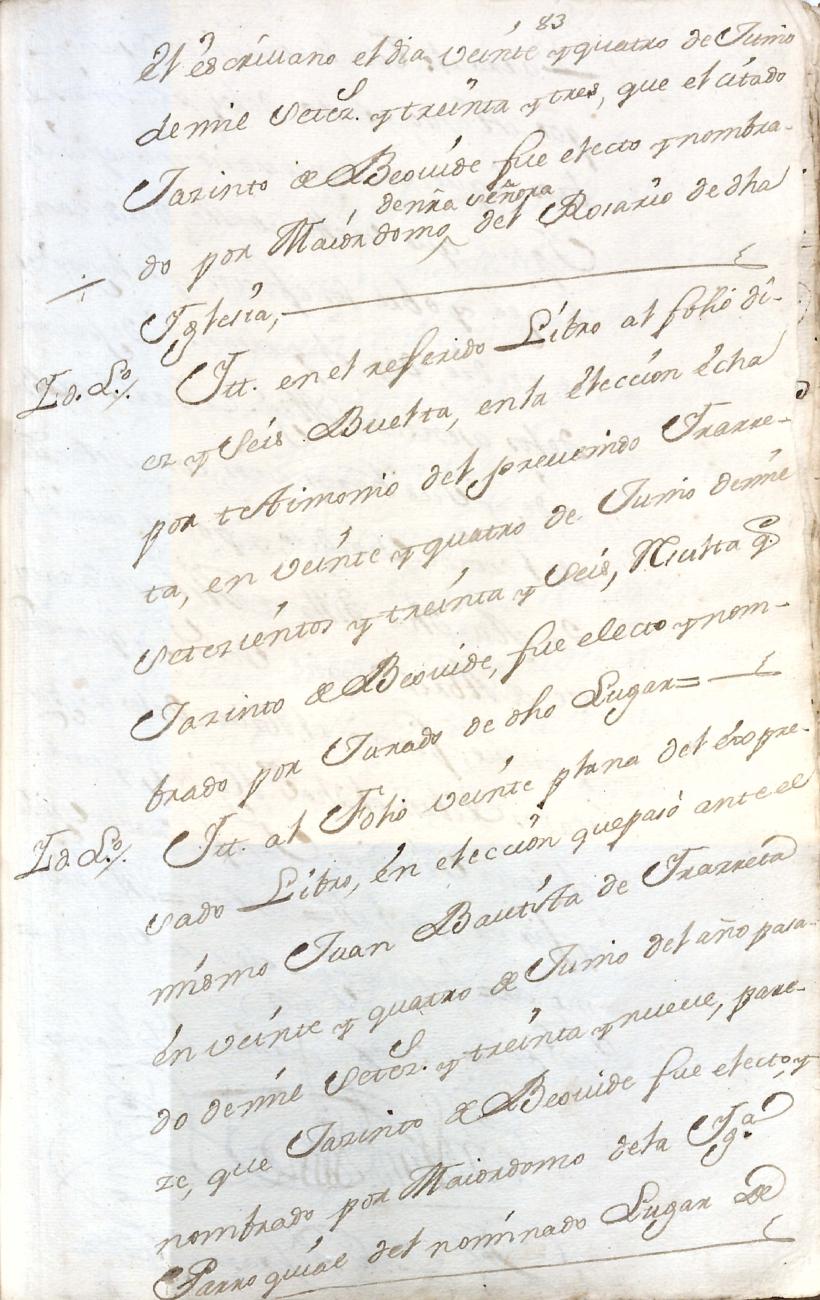 83
el escriuano el dia veinte y quatro de Junio
de mil Setez.s y treinta y tres, que el citado
Jazinto de Beouide fue electo y nombra-
do por Maiordomo de nra señora del Rosario de dha
Iglesia,
Id. Lo. Itt. en el referido Libro al folio di-
ez y Seis Buelta, en la elección echa
por testimonio del preuenido Irarre-
ta, en veinte y quatro de Junio de mil
Setezientos y treinta y Seis, Resulta q.e
Jazinto de Beouide, fue electo y nom-
brado por Jurado de dho Lugar=
Id Lo. Itt. al Folio veinte plana del expre-
sado Libro, en elección que pasó ante el
mismo Juan Bautista de Irarreta
en veinte y quatro de Junio del año pasa-
do de mil Setez.s y treinta y nueve, pare-
ze, que Jazinto de Beouide fue electo, y
nombrado por Maiordomo de la Yg.a
Parroquial del nominado Lugar de